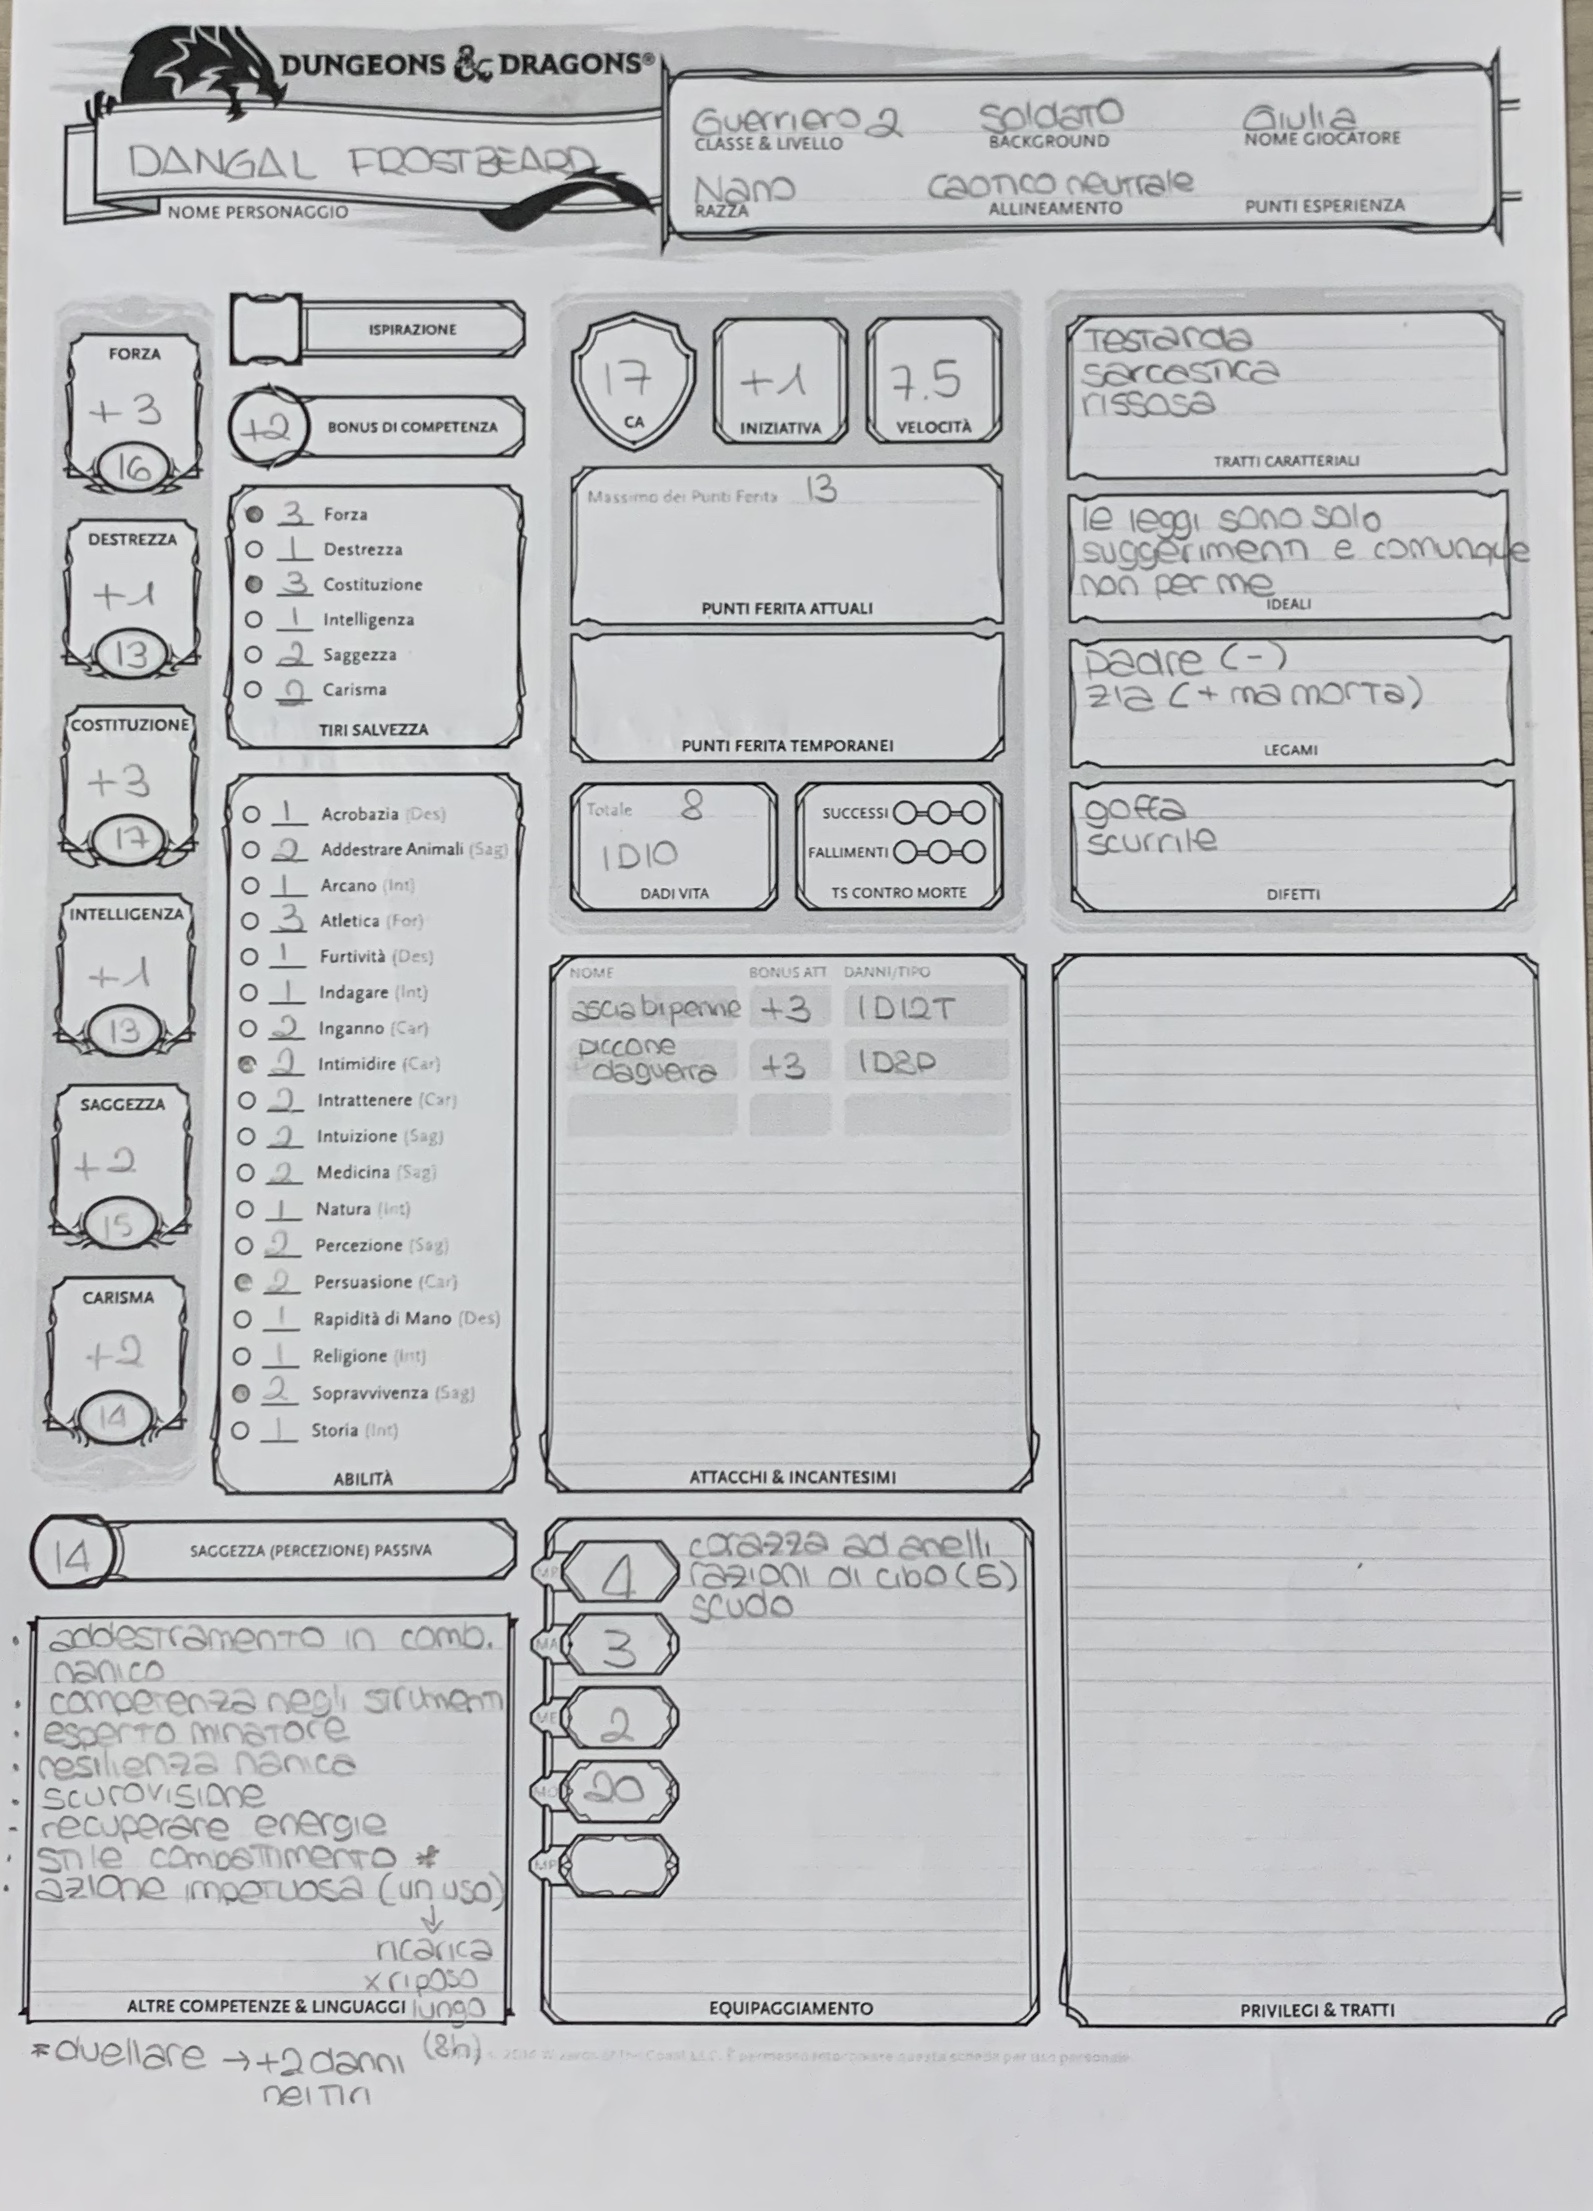 DUNGEONS & DRAGONS®
DANGAL FROSTBEARD
NOME PERSONAGGIO
Guerriero 2
CLASSE & LIVELLO
Soldato
BACKGROUND
Giulia
NOME GIOCATORE
Nano
RAZZA
caotico neutrale
ALLINEAMENTO
PUNTI ESPERIENZA
FORZA
+3
16
DESTREZZA
+1
13
COSTITUZIONE
+3
17
INTELLIGENZA
+1
13
SAGGEZZA
+2
15
CARISMA
+2
14
ISPIRAZIONE
+2 BONUS DI COMPETENZA
3 Forza
1 Destrezza
3 Costituzione
1 Intelligenza
2 Saggezza
2 Carisma
TIRI SALVEZZA
1 Acrobazia (Des)
2 Addestrare Animali (Sag)
1 Arcano (Int)
3 Atletica (For)
1 Furtività (Des)
1 Indagare (Int)
2 Inganno (Car)
2 Intimidire (Car)
2 Intrattenere (Car)
2 Intuizione (Sag)
2 Medicina (Sag)
1 Natura (Int)
2 Percezione (Sag)
2 Persuasione (Car)
1 Rapidità di Mano (Des)
1 Religione (Int)
2 Sopravvivenza (Sag)
1 Storia (Int)
ABILITÀ
14 SAGGEZZA (PERCEZIONE) PASSIVA
• addestramento in comb.
nanico
• competenza negli strumenti
• esperto minatore
• resilienza nanica
• scurovisione
- recuperare energie
• stile combattimento *
• azione impetuosa (un uso)
↓
ricarica
x riposo
lungo
(8h)
ALTRE COMPETENZE & LINGUAGGI
* duellare → +2 danni
nei tiri
17
CA
+1
INIZIATIVA
7.5
VELOCITÀ
Massimo dei Punti Ferita 13
PUNTI FERITA ATTUALI
PUNTI FERITA TEMPORANEI
Totale 8
1D10
DADI VITA
SUCCESSI
FALLIMENTI
TS CONTRO MORTE
NOME BONUS ATT DANNI/TIPO
ascia bipenne +3 1D12T
piccone
da guerra +3 1D8P
ATTACCHI & INCANTESIMI
MR 4
MA 3
ME 2
MO 20
MP
corazza ad anelli
razioni di cibo (5)
scudo
EQUIPAGGIAMENTO
testarda
sarcastica
rissosa
TRATTI CARATTERIALI
le leggi sono solo
suggerimenti e comunque
non per me
IDEALI
padre (-)
zia (+ ma morta)
LEGAMI
goffa
scurrile
DIFETTI
PRIVILEGI & TRATTI
Wizards of the Coast LLC. È permesso fotocopiare questa scheda per uso personale.